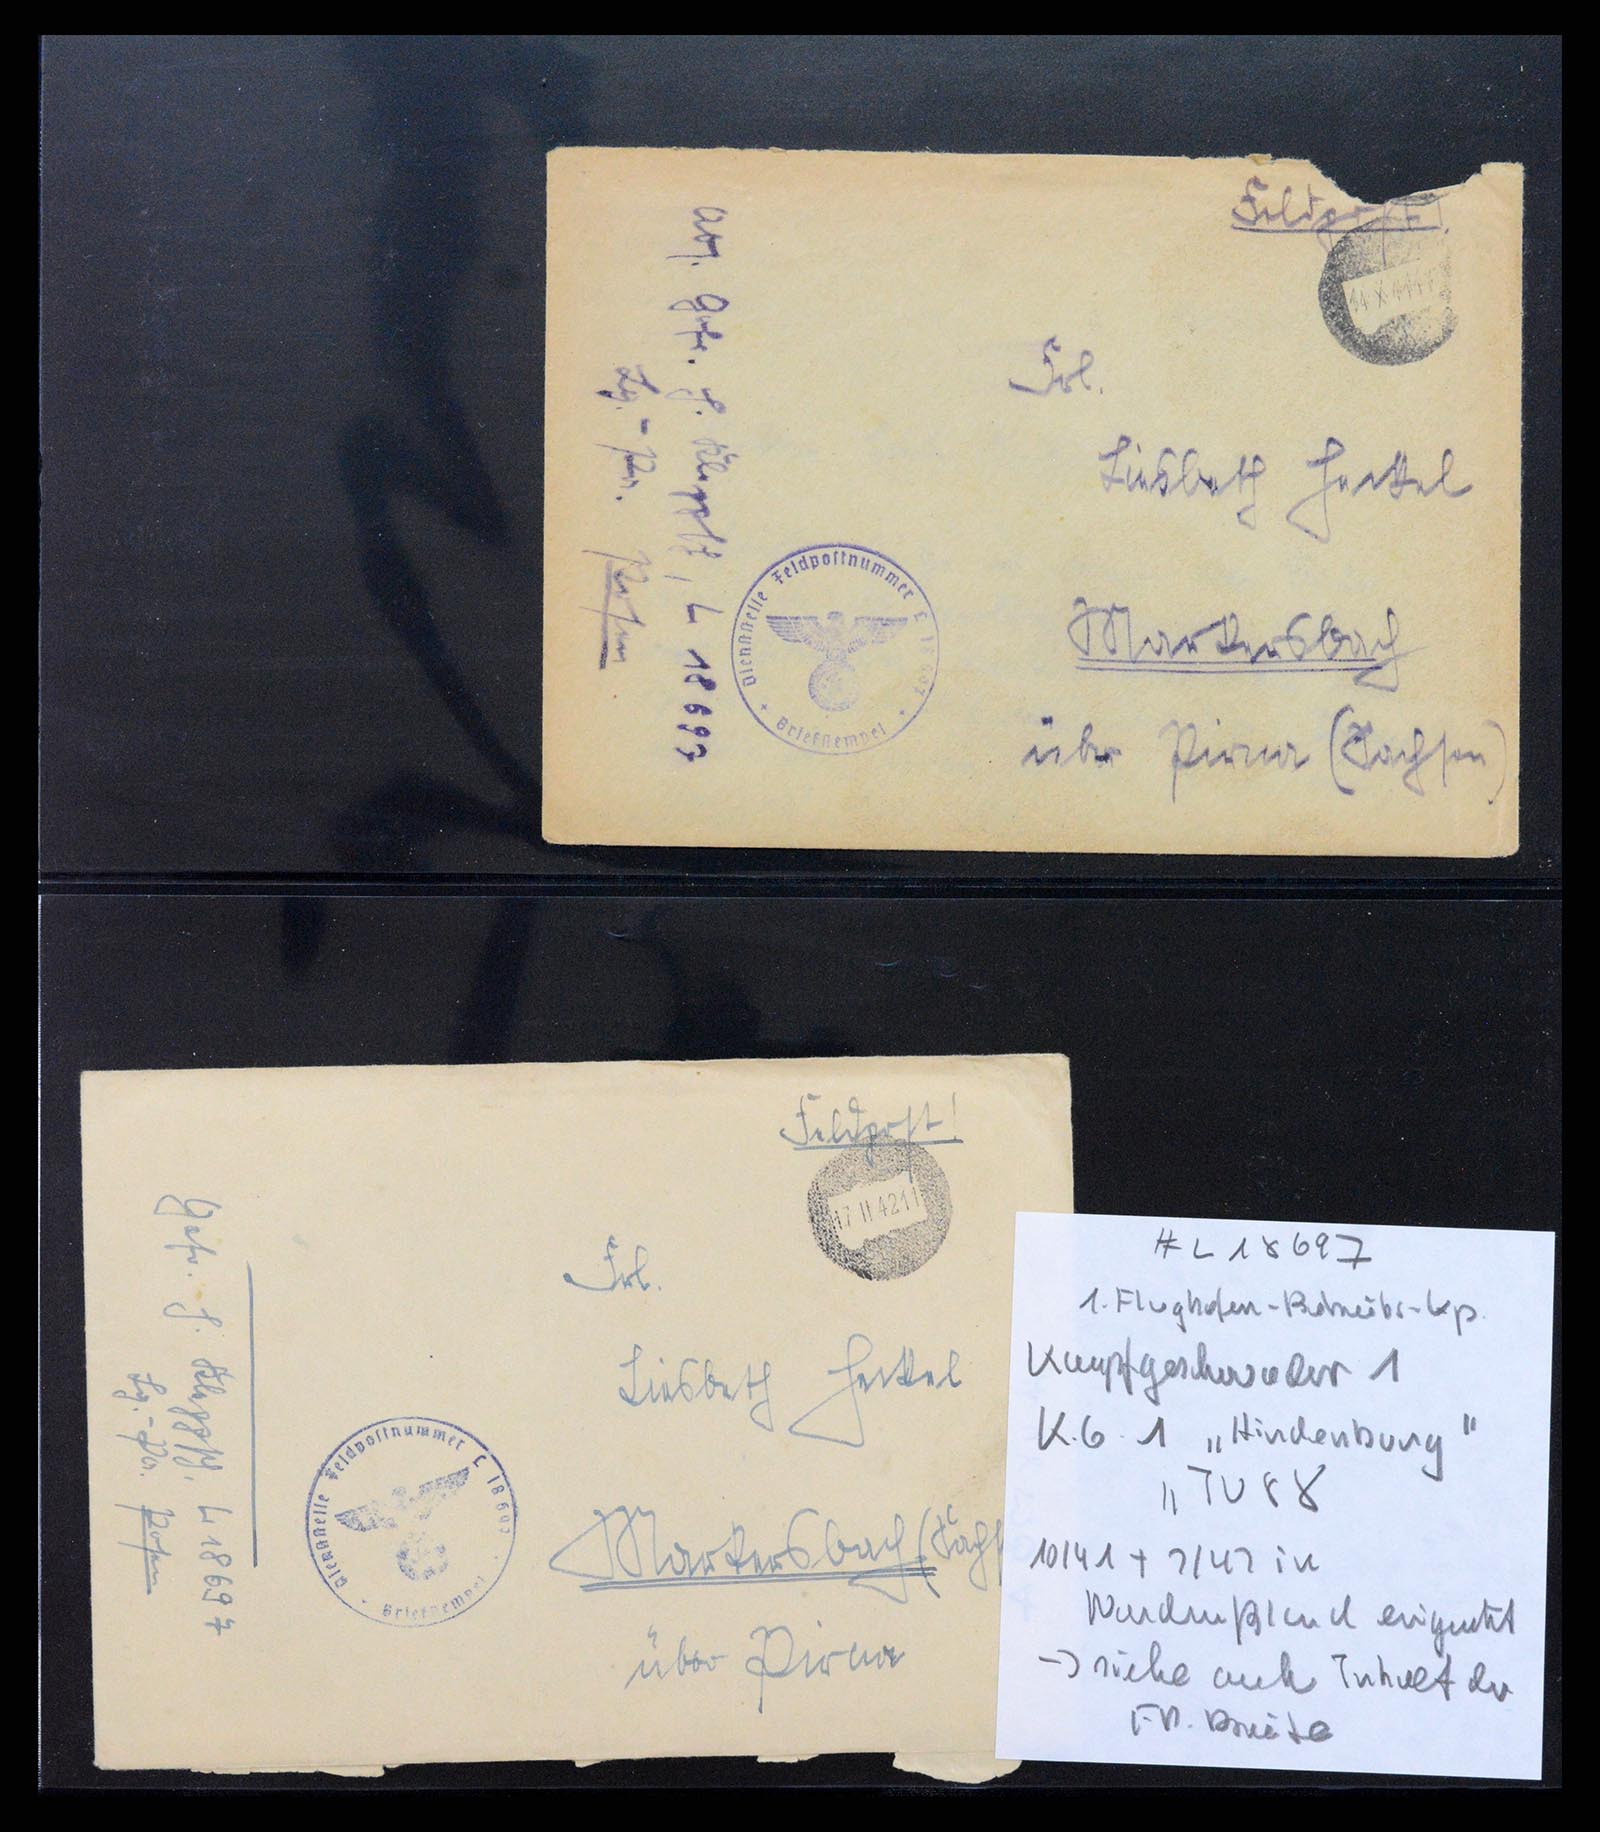 Feldpost!
14 X 41
Frl.
Liesbeth Henkel
Markersbach
über Pirna (Sachsen)
Abs. Gefr. H. L 18697
Lg.-Pa. Posen
Dienststelle Feldpostnummer L 18697
Briefstempel
Feldpost!
17 II 42 11
Frl.
Liesbeth Henkel
Markersbach (Sachs
über Pirna
Gefr. H. L 18697
Lg.-Pa. Posen
Dienststelle Feldpostnummer L 18697
Briefstempel
# L 18697
1. Flughafen-Betriebs-Kp.
Kampfgeschwader 1
K.G. 1 „Hindenburg"
„JU 88
10/41 + 2/42 in
Nordrußland eingesetzt
→ siehe auch Inhalt der
F.P. Briefe